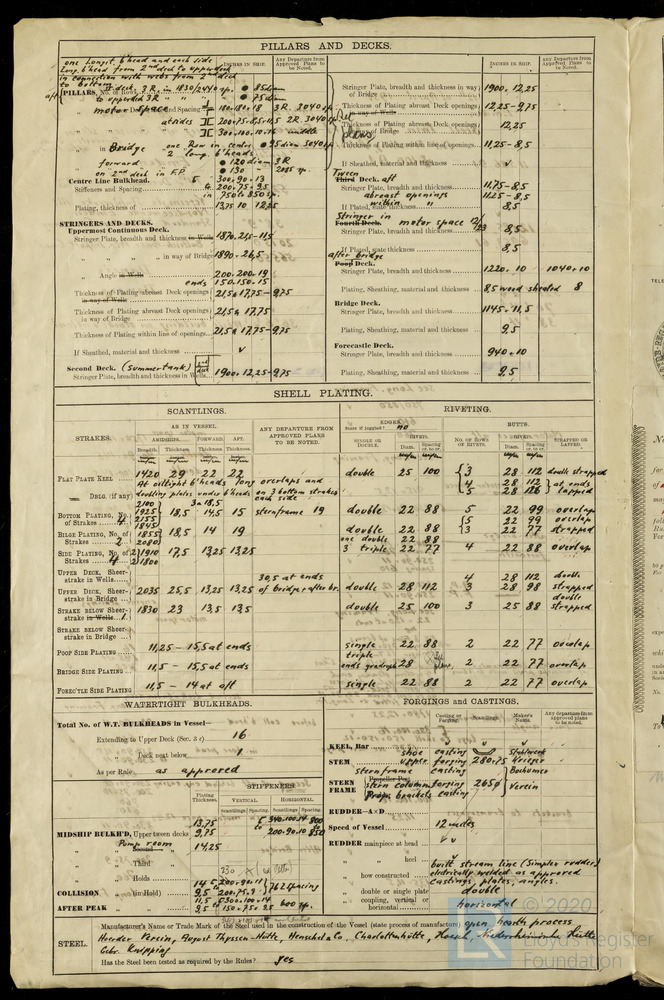 PILLARS AND DECKS.
INCHES IN SHIP.
Any Departure from Approved Plans to be Noted.
INCHES IN SHIP.
Any Departure from Approved Plans to be Noted.
one Longit. b'head and each side
Long. b'head from 2nd deck to upper deck
in connection with webs from 2nd deck
to bottom
PILLARS, No. of Rows
motor space
and Spacing
at sides
middle
in Bridge one Row in centre
2 long. b'heads
forward 120 diam 3R
on 2nd deck in F.P. 130
Centre Line Bulkhead.
300.90.13
Stiffeners and Spacing
200.75.9.5
in 750 to 850 sp.
Plating, thickness of
13,75 10 12,25
STRINGERS AND DECKS.
Uppermost Continuous Deck.
Stringer Plate, breadth and thickness in Wells
1870.25,5-11,5
" " " " in way of Bridge
1890.26,5
Angle in Wells
200.200.19
ends 150.150.15
Thickness of Plating abreast Deck openings in way of Wells
21,5 & 17,75-9,75
Thickness of Plating abreast Deck openings in way of Bridge
21,5 & 17,75
Thickness of Plating within line of openings
21,5 & 17,75-9,75
If Sheathed, material and thickness
Second Deck. (Summertank) 2nd deck
Stringer Plate, breadth and thickness in Wells
1900.12,25-9,75
Stringer Plate, breadth and thickness in way of Bridge
1900.12,25
Thickness of Plating abreast Deck openings in way of Wells
12,25-9,75
Thickness of Plating abreast Deck openings in way of Bridge
12,25
Thickness of Plating within line of openings
11,25-8,5
If Sheathed, material and thickness
Tween
Third Deck. aft
Stringer Plate, breadth and thickness
11,75-8,5
abreast openings
11,25-8,5
If Plated, state thickness
within "
8,5
Stringer in motor space
Fourth Deck.
Stringer Plate, breadth and thickness
8,5
If Plated, state thickness
8,5
after bridge
Poop Deck.
Stringer Plate, breadth and thickness
1220.10
1040.10
Plating, Sheathing, material and thickness
8,5 wood sheated
8
Bridge Deck.
Stringer Plate, breadth and thickness
1145.11,5
Plating, Sheathing, material and thickness
9,5
Forecastle Deck.
Stringer Plate, breadth and thickness
940.10
Plating, Sheathing, material and thickness
9,5
SHELL PLATING.
SCANTLINGS.
RIVETING.
STRAKES.
AS IN VESSEL.
AMIDSHIPS. FORWARD. AFT.
Breadth. Thickness. Thickness. Thickness.
ANY DEPARTURE FROM APPROVED PLANS TO BE NOTED.
EDGES.
State if joggled? no
SINGLE OR DOUBLE.
RIVETS.
Diam.
BUTTS.
NO. OF ROWS OF RIVETS.
RIVETS.
Diam.
STRAPPED OR LAPPED.
FLAT PLATE KEEL
1420 29 22 22
double 25 100
3 28 112 double strapped
4 28 112 at ends
5 28 126 lapped
At oiltight b'heads long overlaps and
DBLG. (if any) doubling plates under b'heads on 3 bottom strakes each side
BOTTOM PLATING, No. of Strakes 4
2100
1925
2155
1845
18,5 14,5 15
sternframe 19
double 22 88
5 22 99 overlap
BILGE PLATING, No. of Strakes 2
1855
2080
18,5 14 19
double 22 88
one double 22 88
5 22 99 overlap
3 22 77 strapped
SIDE PLATING, No. of Strakes 4
2/1910
2/1800
17,5 13,25 13,25
3 triple 22 77
4 22 88 overlap
UPPER DECK, Sheer-strake in Wells
UPPER DECK, Sheer-strake in Bridge
2035 25,5 13,25 13,25
30,5 at ends of bridge, after br.
double 28 112
4 28 112 double
3 28 98 strapped
STRAKE BELOW Sheer-strake in Wells. 1
1830 23 13,5 13,5
double 25 100
3 25 88 double strapped
STRAKE BELOW Sheer-strake in Bridge
POOP SIDE PLATING
11,25 - 15,5 at ends
single 22 88
2 22 77 overlap
BRIDGE SIDE PLATING
11,5 - 15,5 at ends
triple
ends quadruple 28
2 22 77 overlap
FORE'TLE SIDE PLATING
11,5 - 14 at aft
single 22 88
2 22 77 overlap
WATERTIGHT BULKHEADS.
Total No. of W.T. BULKHEADS in Vessel—
Extending to Upper Deck (Sec. 3 c)
16
Deck next below
1
As per Rule
as approved
STIFFENERS.
Plating Thickness.
VERTICAL.
HORIZONTAL.
Scantlings Spacing Scantlings Spacing
MIDSHIP BULKH'D, Upper tween decks
13,75
9,75
340.100.14 800
to 200.90.10 850
Pump room
" Second "
14,25
" Third "
" Holds
COLLISION " (in Hold)
14
9,5
200.90.11
to 200.75.9
762 spacing
AFTER PEAK
11,5
9,5
300.100.14
to 150.75.9,5
600 sp.
FORGINGS and CASTINGS.
Casting or Forging.
Scantlings.
Maker's Name.
Any departure from approved plans to be noted.
KEEL, Bar
STEM
shoe casting
Stahlwerk
upper forging 280.75
Krieger
STERN FRAME
sternframe casting
Bochumer
Propeller Post
stern column forging 265ø
Verein
Prop. brackets casting
RUDDER—A×D
Speed of Vessel
12 miles
RUDDER mainpiece at head
" " heel
how constructed
built stream line (Simplex rudder)
electrically welded as approved
castings, plates, angles.
double or single plate
double
coupling, vertical or horizontal
horizontal
STEEL.
Manufacturer's Name or Trade Mark of the Steel used in the construction of the Vessel (state process of manufacture) open hearth process
Hoerder Verein, August Thyssen-Hütte, Henschel & Co, Charlottenhütte, Hoesch, Niederrheinische Hütte
Gebr. Knipping
Has the Steel been tested as required by the Rules? yes
© 2020
Lloyd's Register
Foundation
TELE